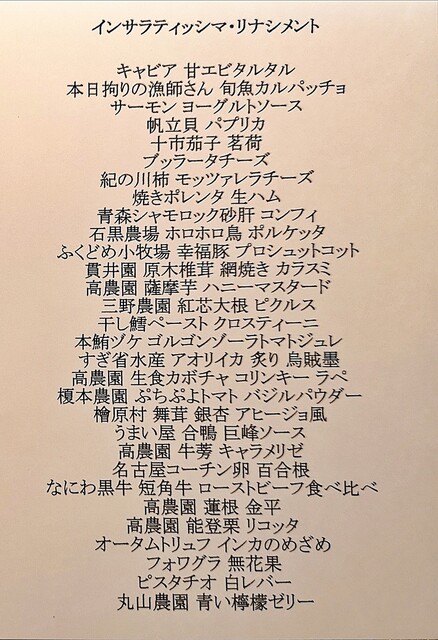 インサラティッシマ・リナシメント
キャビア 甘エビタルタル
本日拘りの漁師さん 旬魚カルパッチョ
サーモン ヨーグルトソース
帆立貝 パプリカ
十市茄子 茗荷
ブッラータチーズ
紀の川柿 モッツァレラチーズ
焼きポレンタ 生ハム
青森シャモロック砂肝 コンフィ
石黒農場 ホロホロ鳥 ポルケッタ
ふくどめ小牧場 幸福豚 プロシュットコット
貫井園 原木椎茸 網焼き カラスミ
高農園 薩摩芋 ハニーマスタード
三野農園 紅芯大根 ピクルス
干し鱈ペースト クロスティーニ
本鮪ヅケ ゴルゴンゾーラトマトジュレ
すぎ省水産 アオリイカ 炙り 烏賊墨
高農園 生食カボチャ コリンキー ラペ
榎本農園 ぷちぷよトマト バジルパウダー
檜原村 舞茸 銀杏 アヒージョ風
うまい屋 合鴨 巨峰ソース
高農園 牛蒡 キャラメリゼ
名古屋コーチン卵 百合根
なにわ黒牛 短角牛 ローストビーフ食べ比べ
高農園 蓮根 金平
高農園 能登栗 リコッタ
オータムトリュフ インカのめざめ
フォワグラ 無花果
ピスタチオ 白レバー
丸山農園 青い檸檬ゼリー